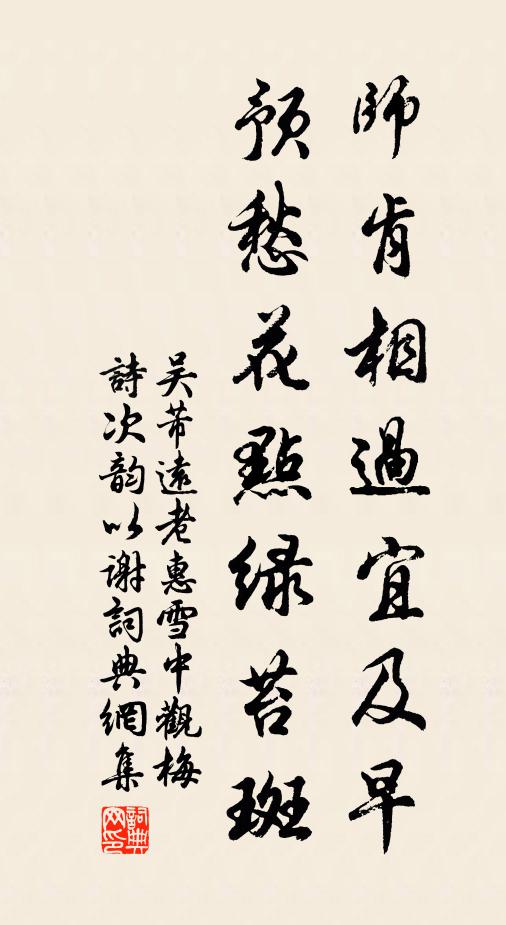 師肯相過宜及早
預愁花點绿苔斑
吴芾遠老惠雪中觀梅
詩次韵以谢詞典網集
詞典网印